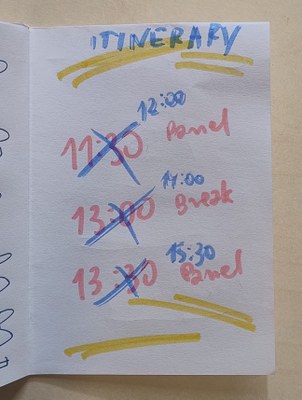 ITYNERARY
12:00
11:30 Panel
14:00
13:00 Break
15:30
13:30 Panel